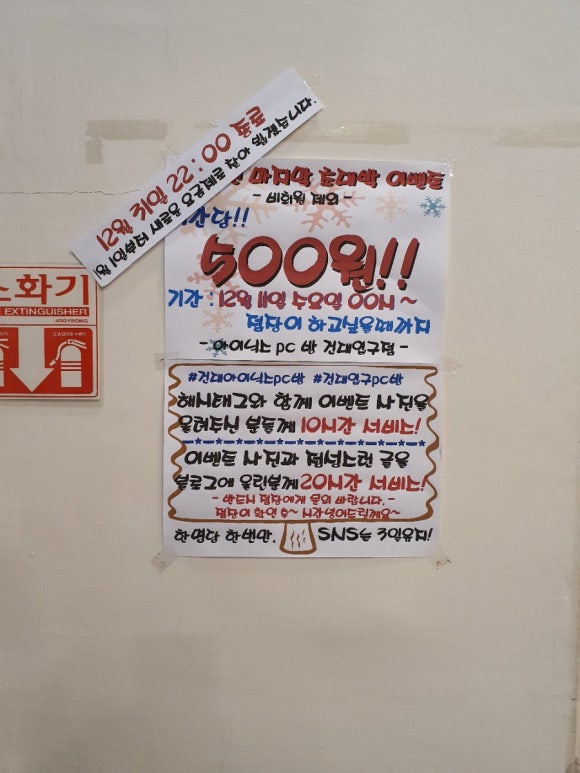 12월 31일 22:00
마지막 초대박 이벤트
- 비회원 제외 -
시간당!!
500원!!
기간 : 12월 11일 수요일 00시 ~
점장이 하고싶을때까지
- 아이닉스 pc 방 건대입구점 -
#건대아이닉스pc방 #건대입구pc방
해시태그와 함께 이벤트 사진을
올려주신 분들께 10시간 서비스!
이벤트 사진과 정성스런 글을
블로그에 올린분께 20시간 서비스!
- 반드시 점장에게 문의 바랍니다. -
점장이 확인 후~ 시간넣어드릴께요~
한명당 한번만. SNS는 3일유지!
소화기
EXTINGUISHER
JOGYEONG